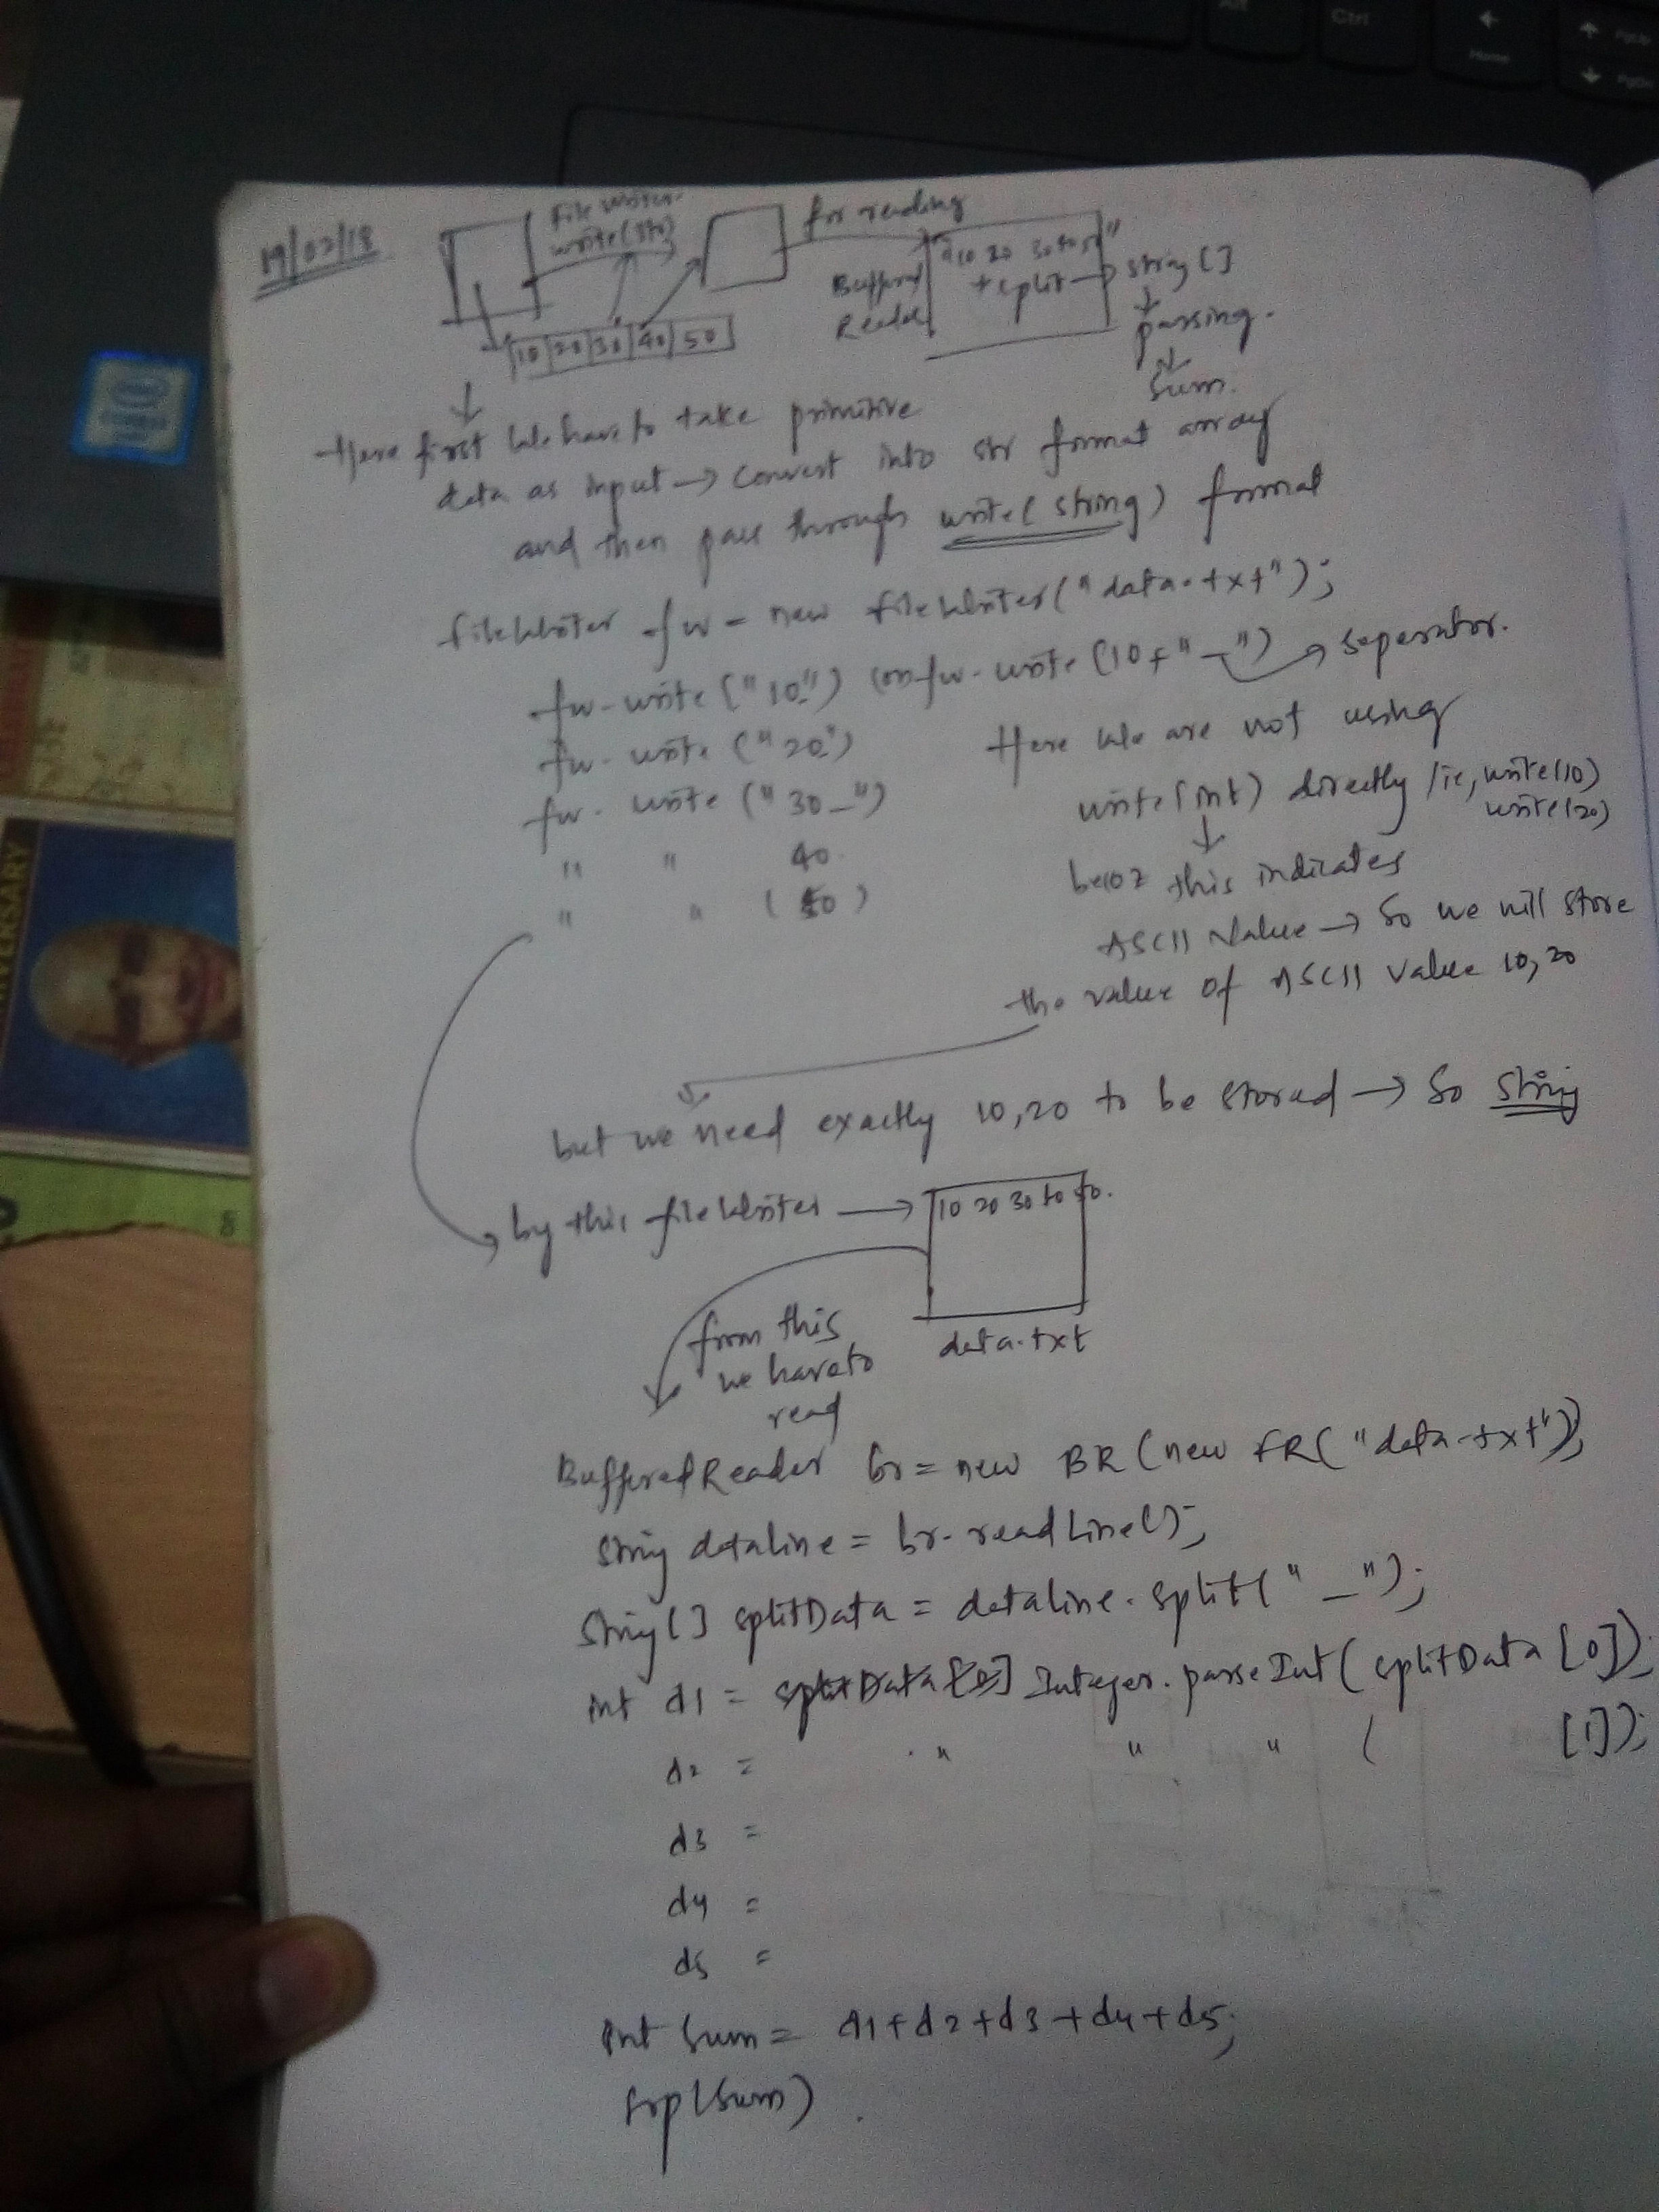 19/02/18
File Writer
write(str)
for reading
10 20 30 40 50
Buffered
Reader
"10 20 30 40 50"
+ split → string []
parsing.
Sum.
Here first We have to take primitive
data as input → convert into str format array
and then pass through write(string) format
fileWriter fw = new fileWriter("data.txt");
fw.write("10_") (or) fw.write(10+"_") → seperator.
fw.write("20_")
fw.write("30_")
" " 40
" " (50)
Here We are not using
write(int) directly / ie, write(10)
write(20)
becoz this indicates
ASCII Value → So we will store
the value of ASCII value 10, 20
but we need exactly 10,20 to be stored → So String
by this fileWriter → 10 20 30 40 50.
data.txt
from this
we have to
read
BufferedReader br = new BR(new FR("data.txt"));
String dataline = br.readLine();
String[] splitData = dataline.split("_");
int d1 = splitData[0] Integer.parseInt(splitData[0]);
d2 = " " " ( [1]);
d3 =
d4 =
d5 =
int sum = d1+d2+d3+d4+d5;
sop(sum)